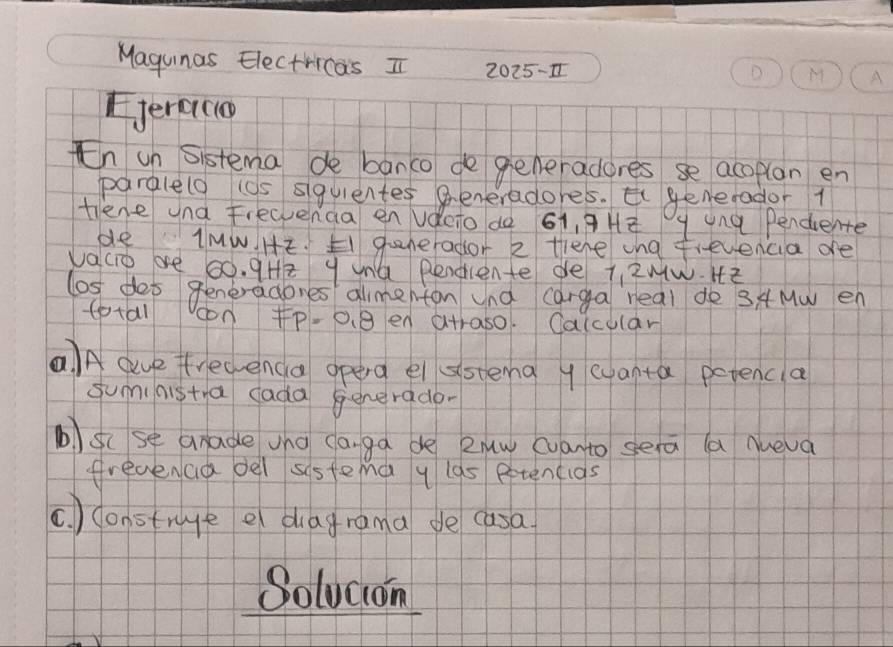 Maquinas Electricas II 2025-II
D M A
Ejercicio
En un Sistema de banco de generadores se acoplan en
paralelo los siguientes generadores. El generador 1
tiene una Frecuencia en vacio de 61,9 HZ y una Pendiente
de 1MW.HZ. El generador 2 tiene una frecuencia de
vacio de 60.9Hz y una Pendiente de 1,2MW.HZ
los dos generadores alimentan una carga real de 3,4 MW en
total con FP=0,8 en atraso. Calcular
a.) A que frecuencia opera el sistema y cuanta potencia
suministra cada generador
b.) si se añade una carga de 2MW cuanto será la nueva
frecuencia del sistema y las Potencias
c.) Construye el diagrama de casa.
Solución